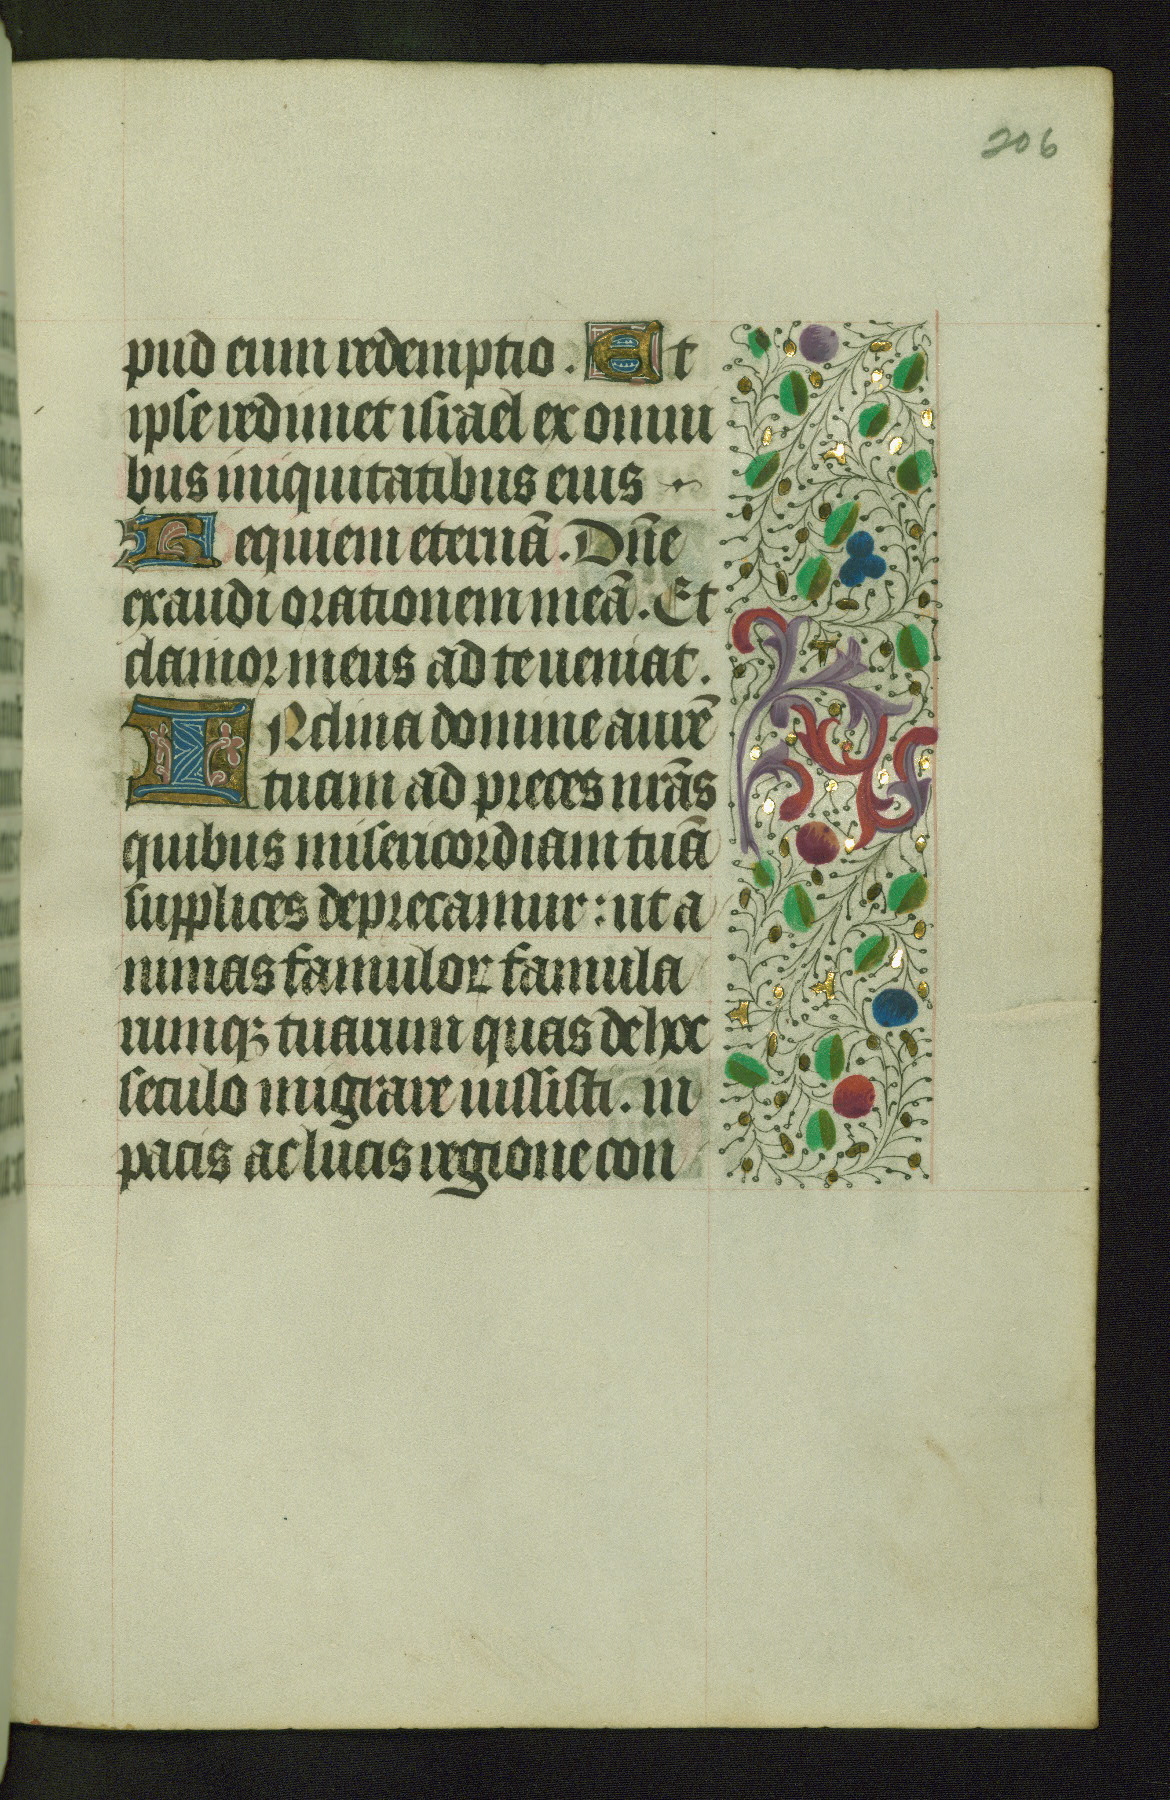 206
pud eum redemptio. Et
ipse redimet israel ex omni
bus iniquitatibus eius
Requiem eternā. Dn̄e
exaudi orationem meā. Et
clamor meus ad te ueniat.
INclina domine aurē
tuam ad preces nrās
quibus misericordiam tuā
supplices deprecamur: ut a
nimas famuloꝝ famula
rumqꝫ tuarum quas de hoc
seculo migrare iussisti. in
pacis ac lucis regione con